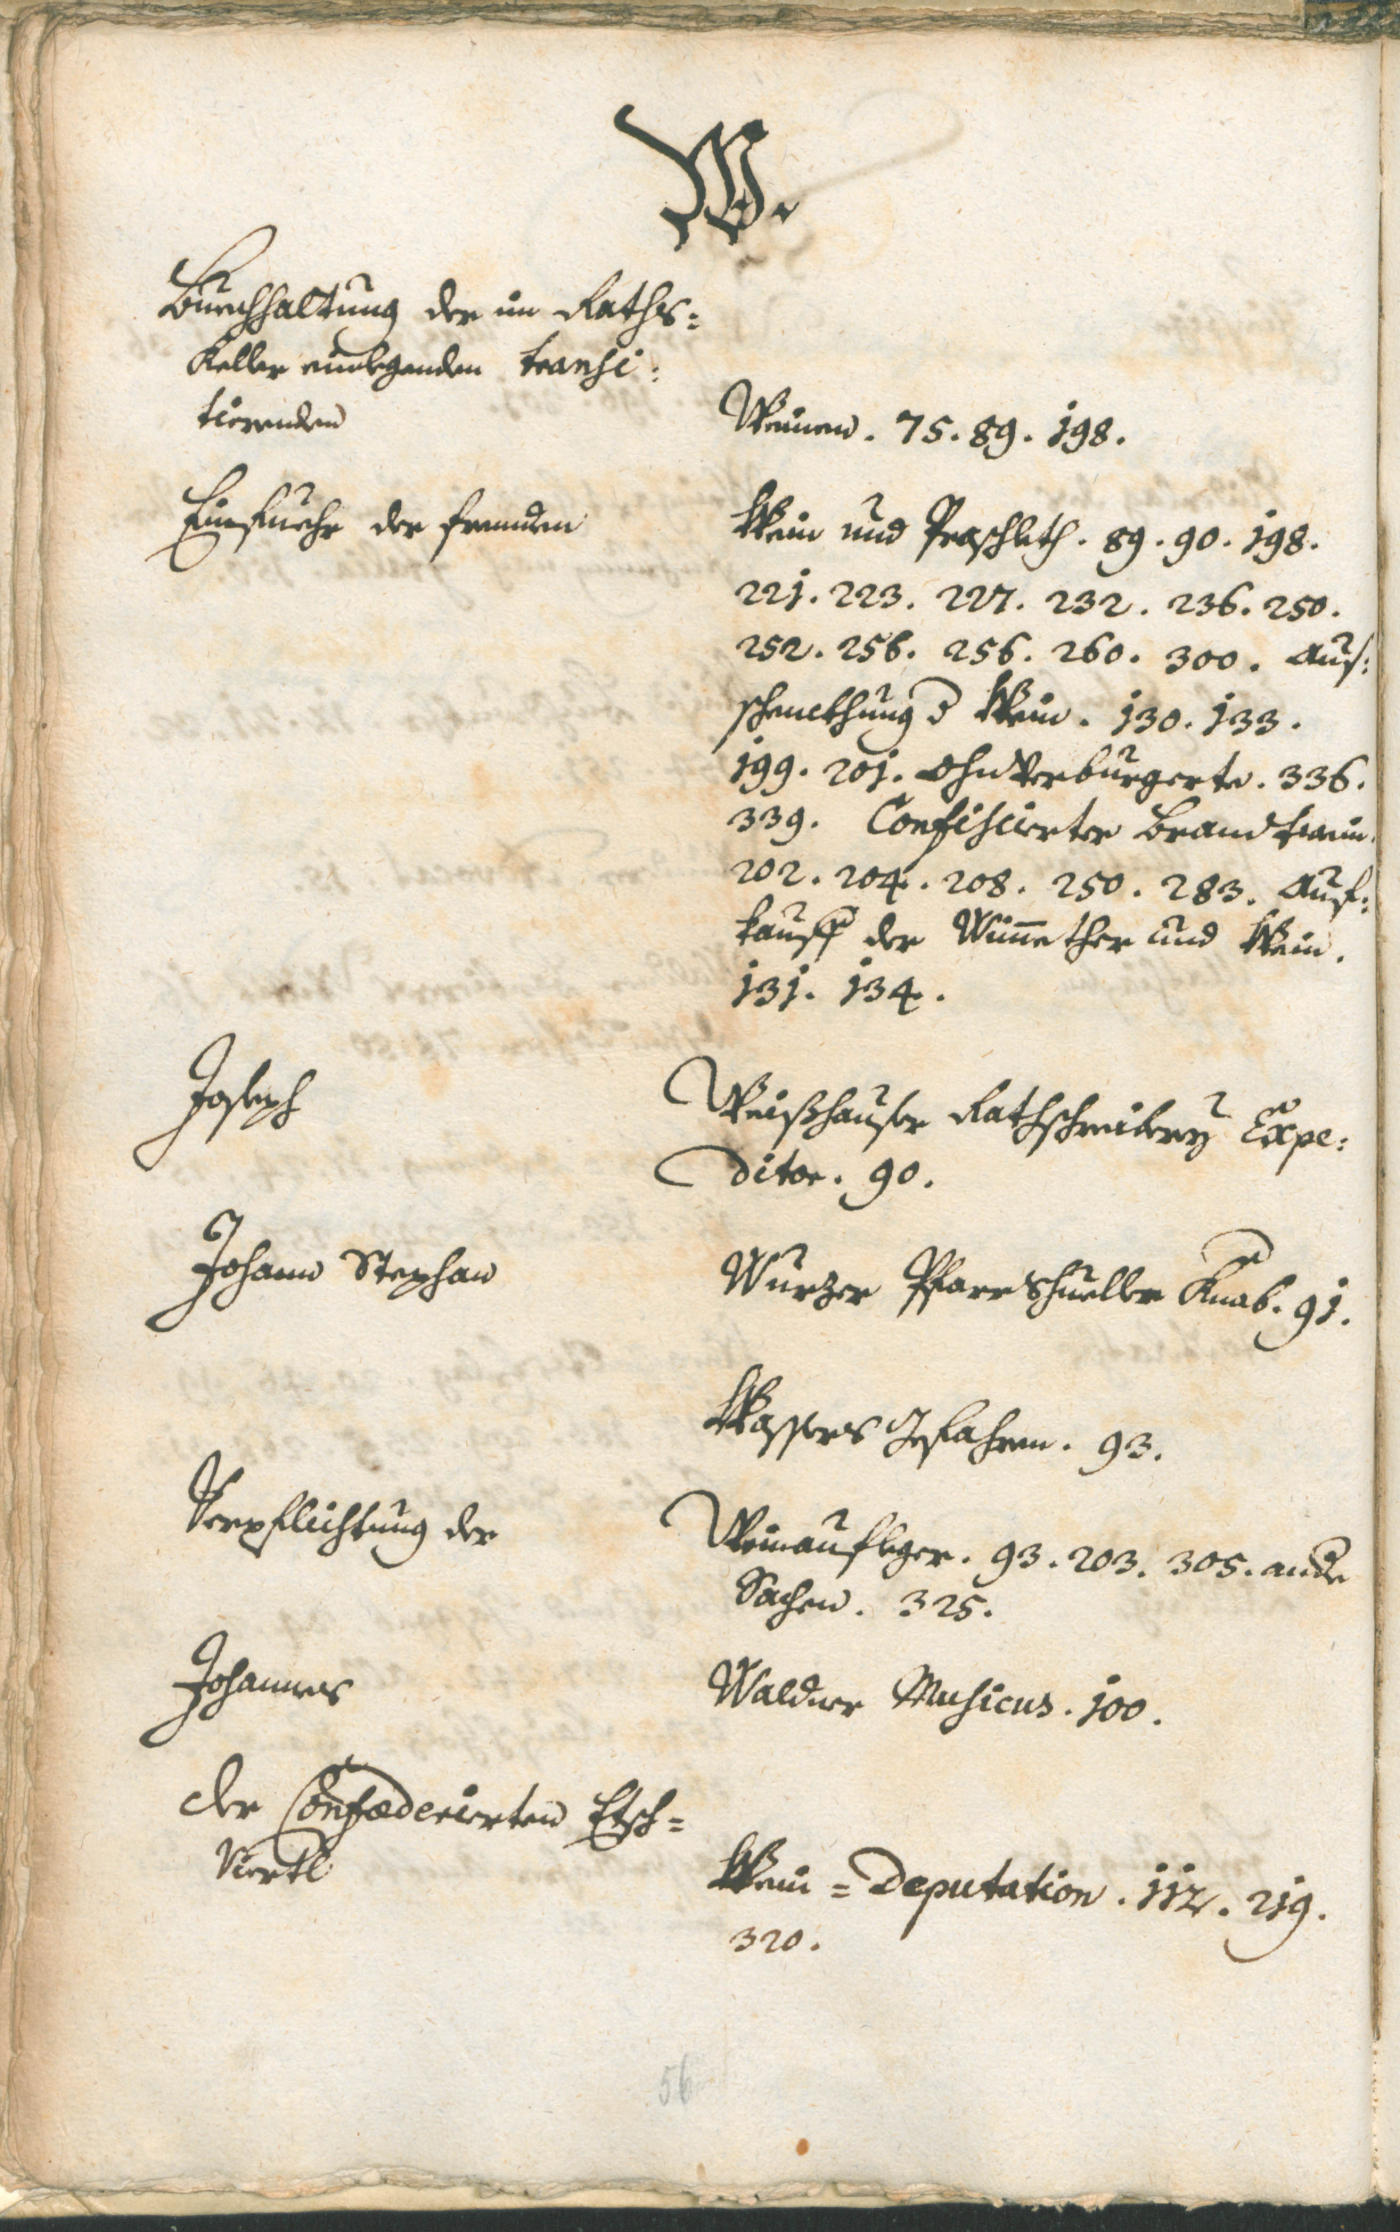 W.
Buechhaltung der im Raths=
Keller einlegenden transi:
tierenden
Weinen. 75. 89. 198.
Einfuehr der fremden
Wein und Praschleth. 89. 90. 198.
221. 223. 227. 232. 236. 250.
252. 256. 256. 260. 300. Aus:
schenckhung d Wein. 130. 133.
199. 201. Ohnverburgerte. 336.
339. Confiscierter Brandtwein.
202. 204. 208. 250. 283. Auf:
kauff der Wimether und Wein.
131. 134.
Joseph
Weißhauser Rathschreiberey Expe:
ditor. 90.
Johann Stephan
Wurzer Pfarrschueller Knab. 91.
Wassers Gefahren. 93.
Verpflichtung der
Weinaufleger. 93. 203. 305. ande
Sachen. 325.
Johannes
Waldner Musicus. 100.
der Confœderierten Etsch=
Viertl
Wein=Deputation. 112. 219.
320.
56